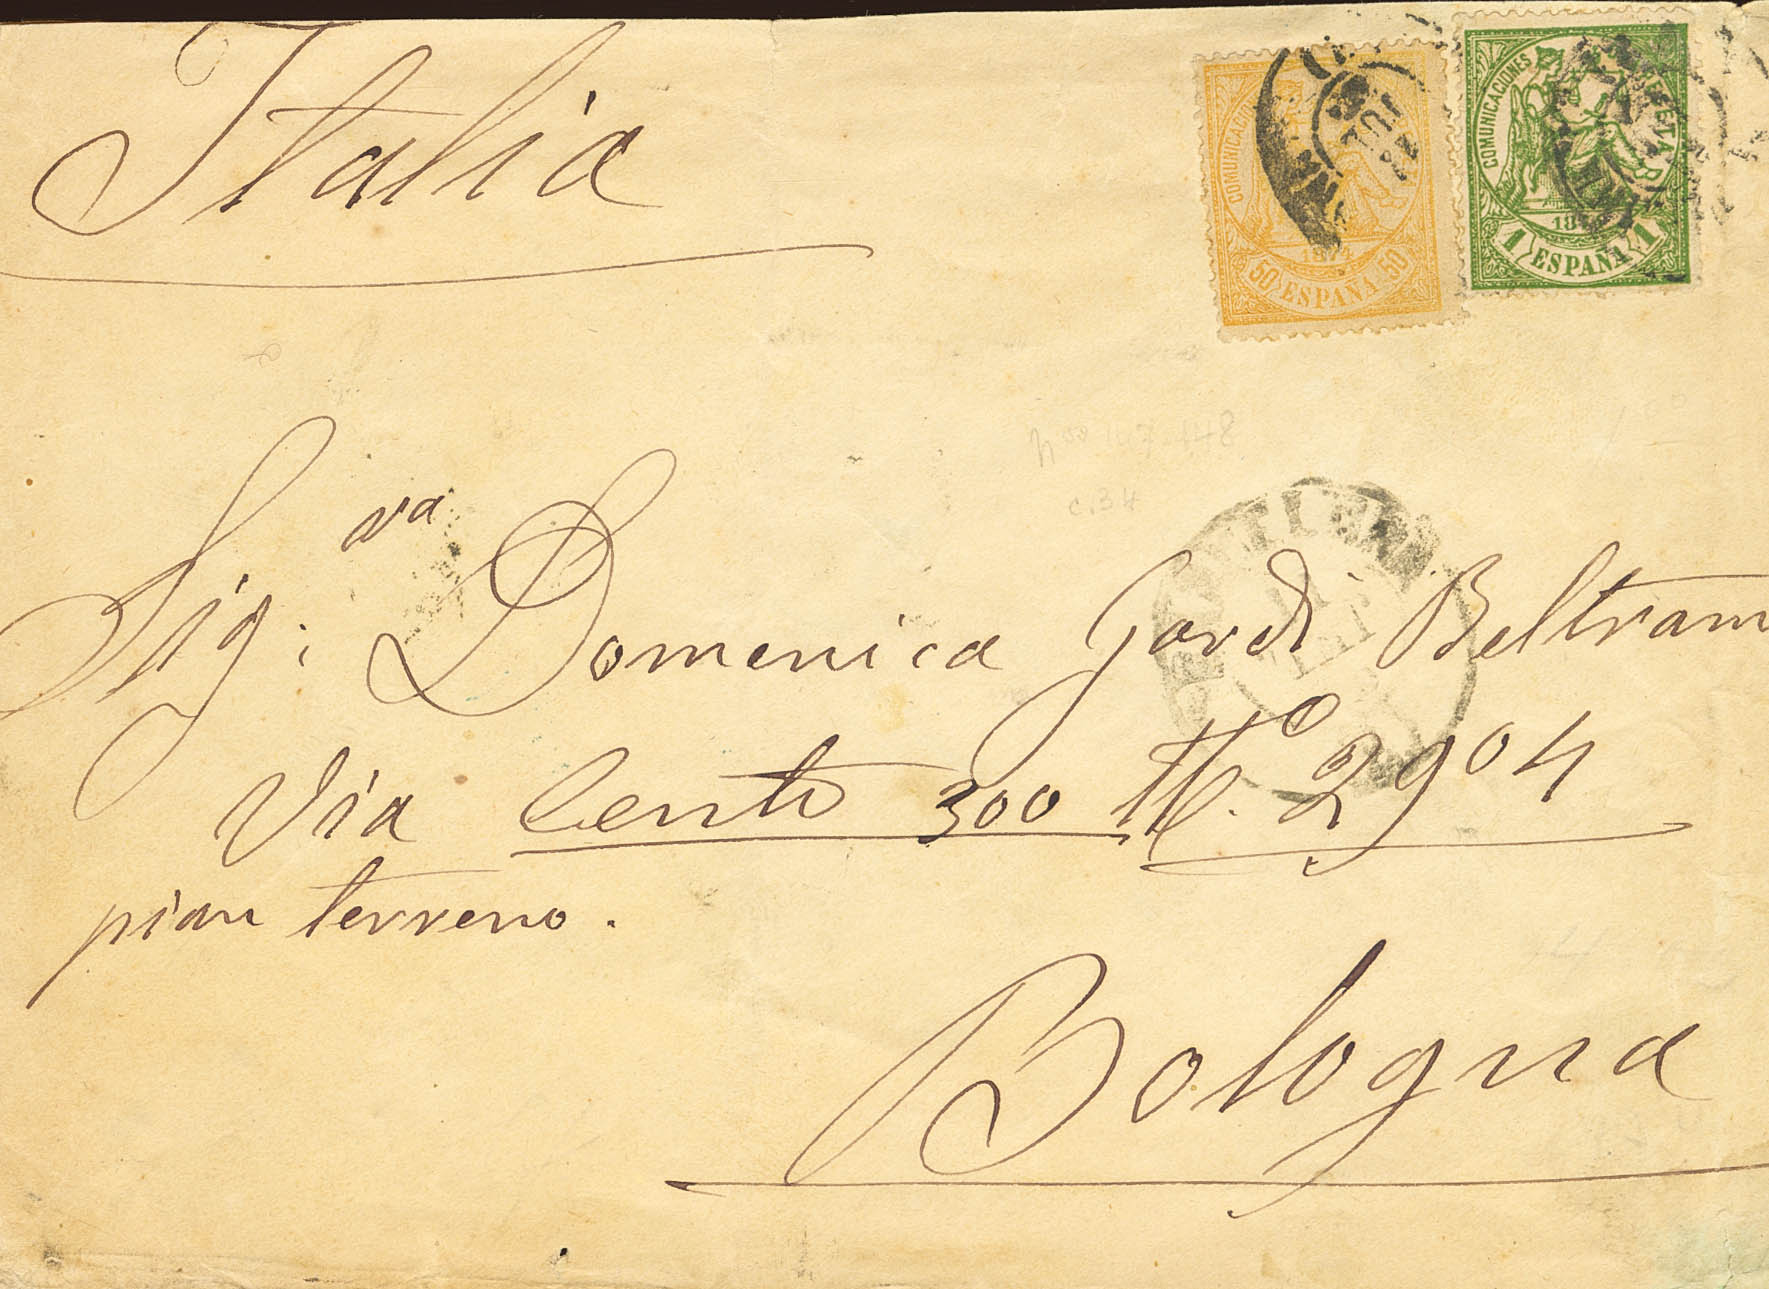 Italia
COMUNICACIONES
1874
50 ESPAÑA 50
JUL
COMUNICACIONES
1 ESPAÑA 1
c. 34
Sig.va Domenica Gordi Beltram
Via Cento 300 N.o 2904
pian terreno.
Bologna